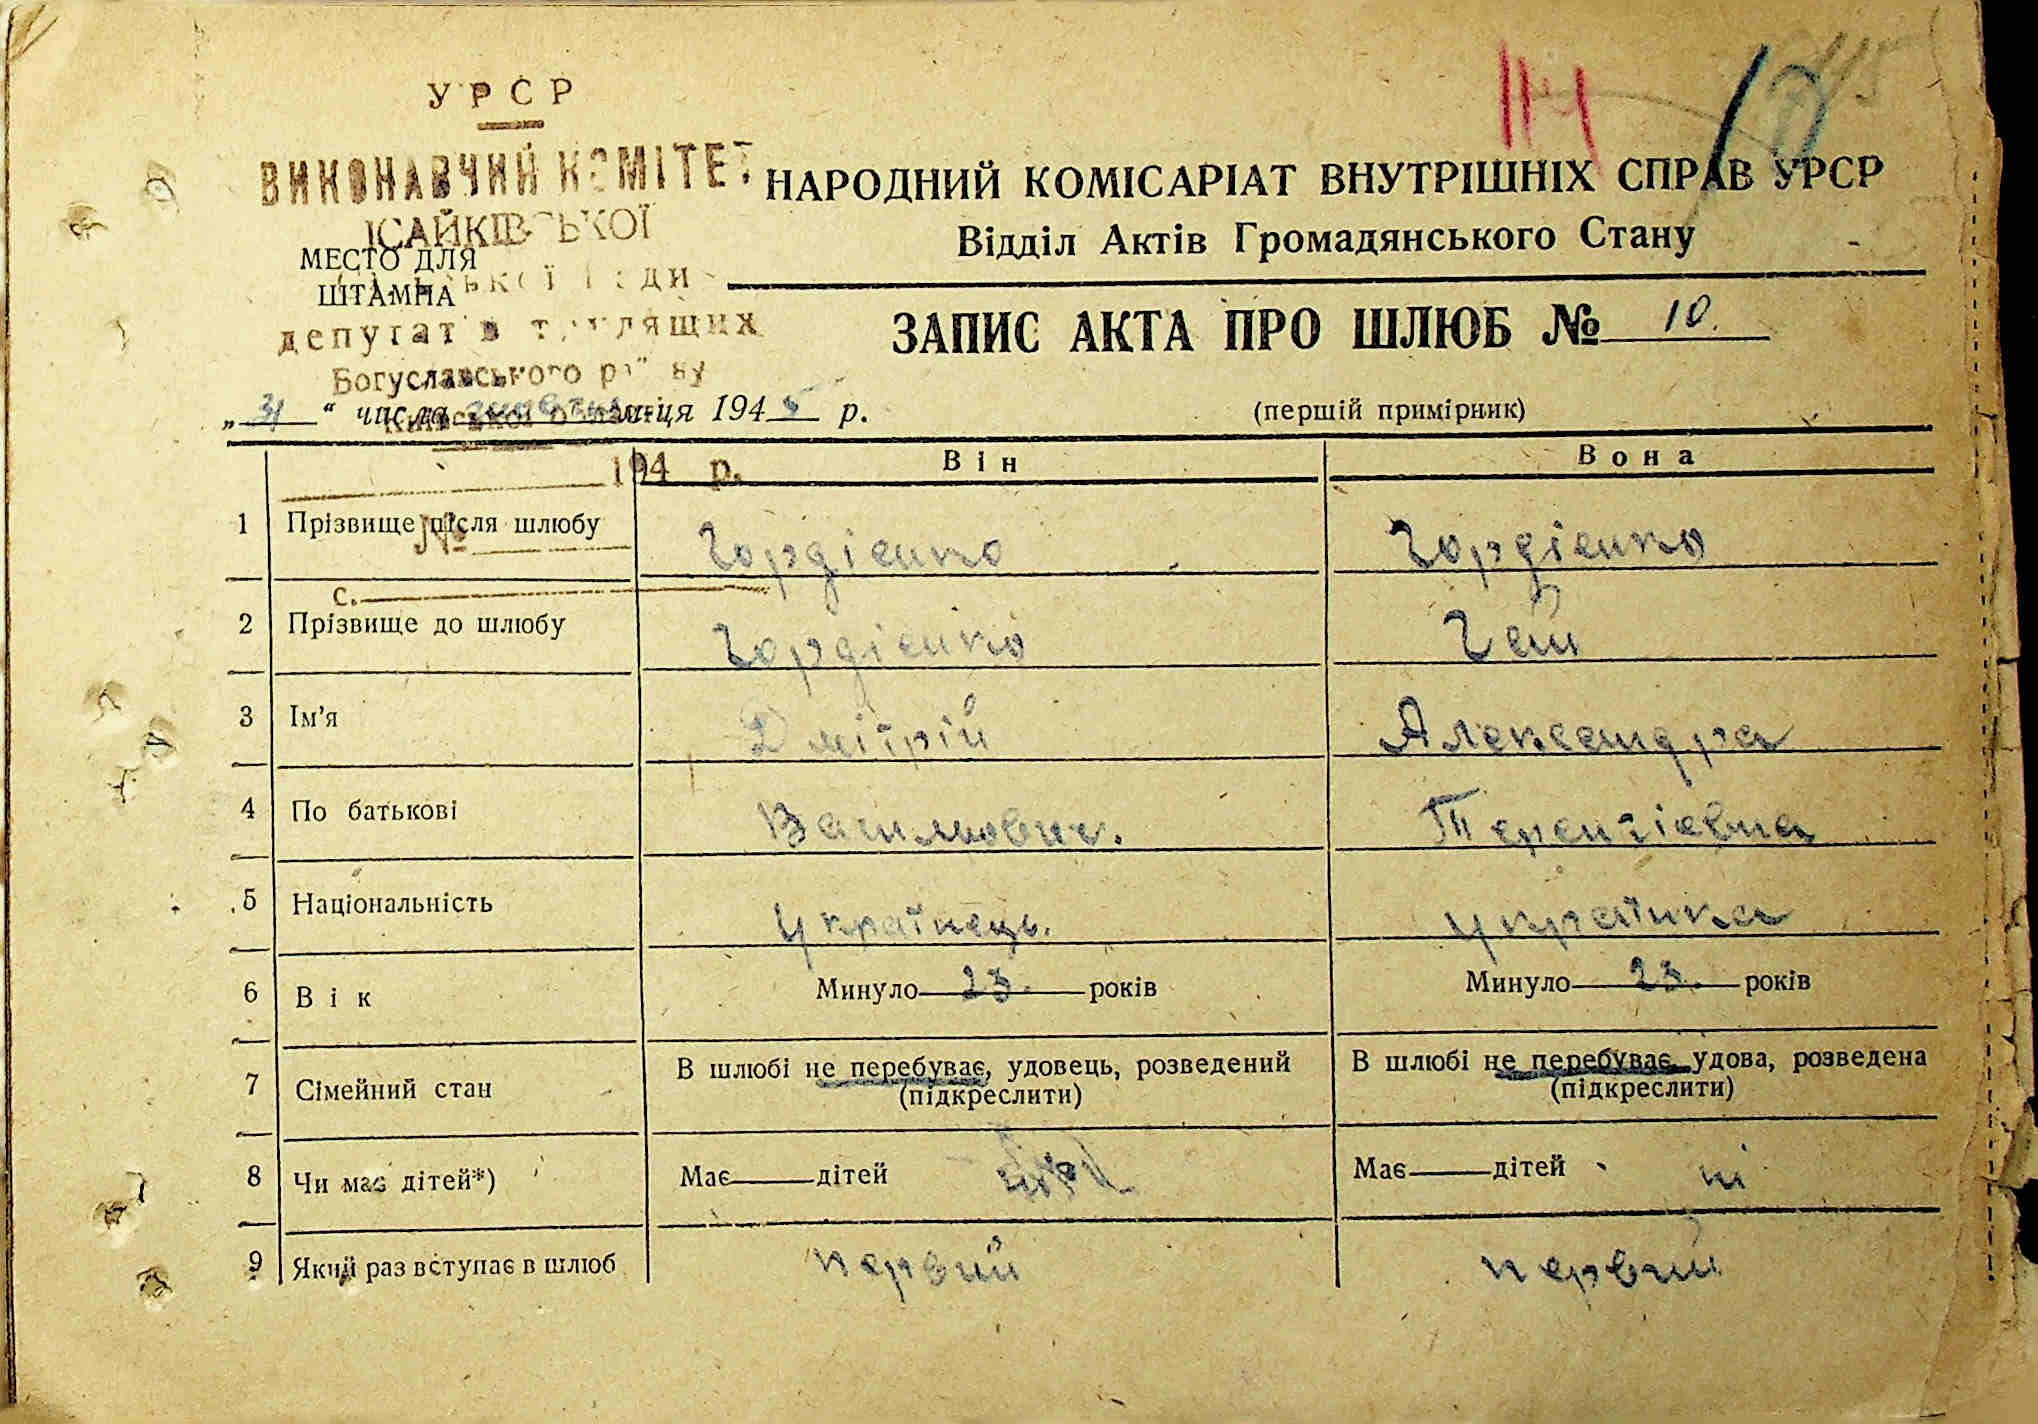 УРСР
ВИКОНАВЧИЙ КОМІТЕТ
ІСАЙКІВСЬКОЇ
депутатів трудящих
Богуславського р-ну
194 р.
№
с.
МЕСТО ДЛЯ
ШТАМПА
114
НАРОДНИЙ КОМІСАРІАТ ВНУТРІШНІХ СПРАВ УРСР
Відділ Актів Громадянського Стану
ЗАПИС АКТА ПРО ШЛЮБ № 10.
„31“ числа місяця 1945 р.
(першій примірник)
Він Вона
1 Прізвище після шлюбу Гордієнко Гордієнко
2 Прізвище до шлюбу Гордієнко Гей
3 Ім'я Дмітрій Александра
4 По батькові Васильович. Терентіевна
5 Національність Українець. Українка
6 Вік Минуло 23. років Минуло 23. років
7 Сімейний стан В шлюбі не перебуває, удовець, розведений В шлюбі не перебуває, удова, розведена
(підкреслити) (підкреслити)
8 Чи має дітей*) Має дітей Має дітей ні
9 Який раз вступає в шлюб первий первий